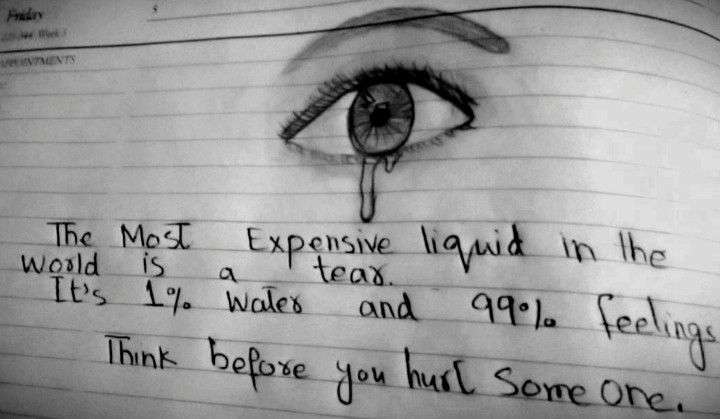 Friday
APPOINTMENTS
The Most Expensive liquid in the
World is a tear.
It's 1% Water and 99% feelings
Think before you hurt Some One.